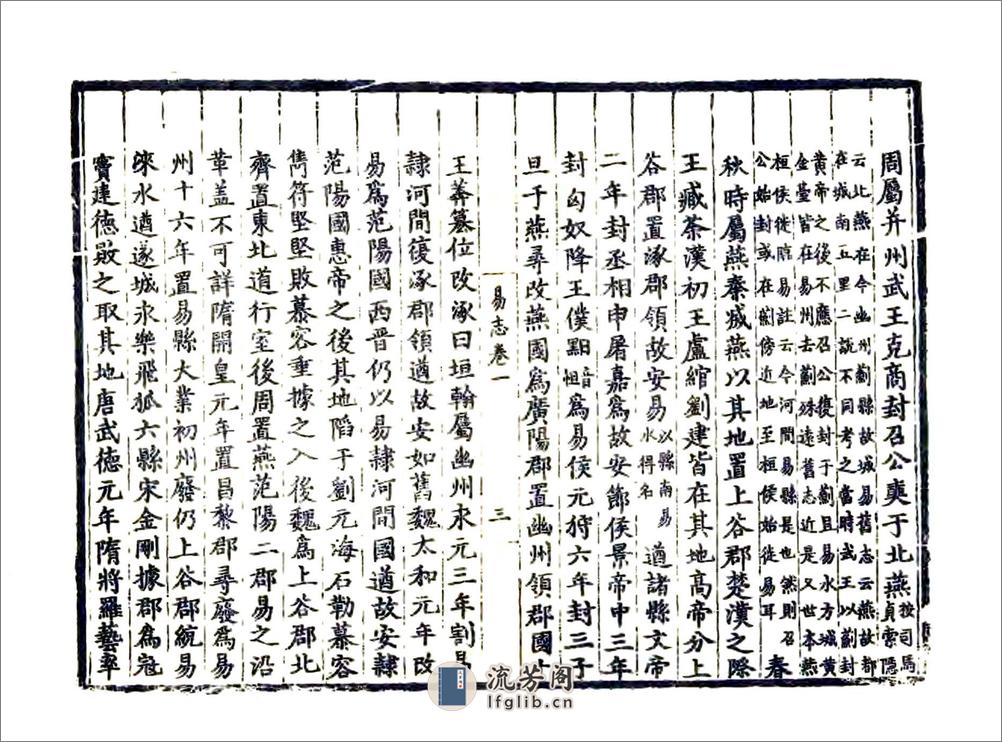 周屬并州武王克商封召公奭于北燕按司馬
貞索隱
云北燕在今幽州薊縣故城易舊志云燕故都
在城南五里二說不同考之當時武王以薊封
黃帝之後不應召公復封于薊且易水方城黃
金臺皆在易州去薊殊遠舊志近是又世本燕
桓侯徙臨易註云今河間易縣是也然則召
公始封或在薊傍近地至桓侯始徙易耳春
秋時屬燕秦滅燕以其地置上谷郡楚漢之際
王臧荼漢初王盧綰劉建皆在其地高帝分上
谷郡置涿郡領故安易以縣南易水得名遒諸縣文帝
二年封丞相申屠嘉為故安節侯景帝中三年
封匈奴降王僕䵣音怛為易侯元狩六年封三子
旦于燕尋改燕國為廣陽郡置幽州領郡國
易志卷一 三
王莽篡位改涿曰垣翰屬幽州永元三年割易
隸河間復涿郡領遒故安如舊魏太和元年改
易為范陽國西晉仍以易隸河間國遒故安隸
范陽國惠帝之後其地陷于劉元海石勒慕容
雋符堅堅敗慕容垂據之入後魏為上谷郡北
齊置東北道行室後周置燕范陽二郡易之沿
革蓋不可詳隋開皇元年置昌黎郡尋廢為易
州十六年置易縣大業初州廢仍上谷郡統易
淶水遒遂城永樂飛狐六縣宋金剛據郡為寇
竇建德敗之取其地唐武德元年隋將羅藝率
流芳阁
lfglib.cn